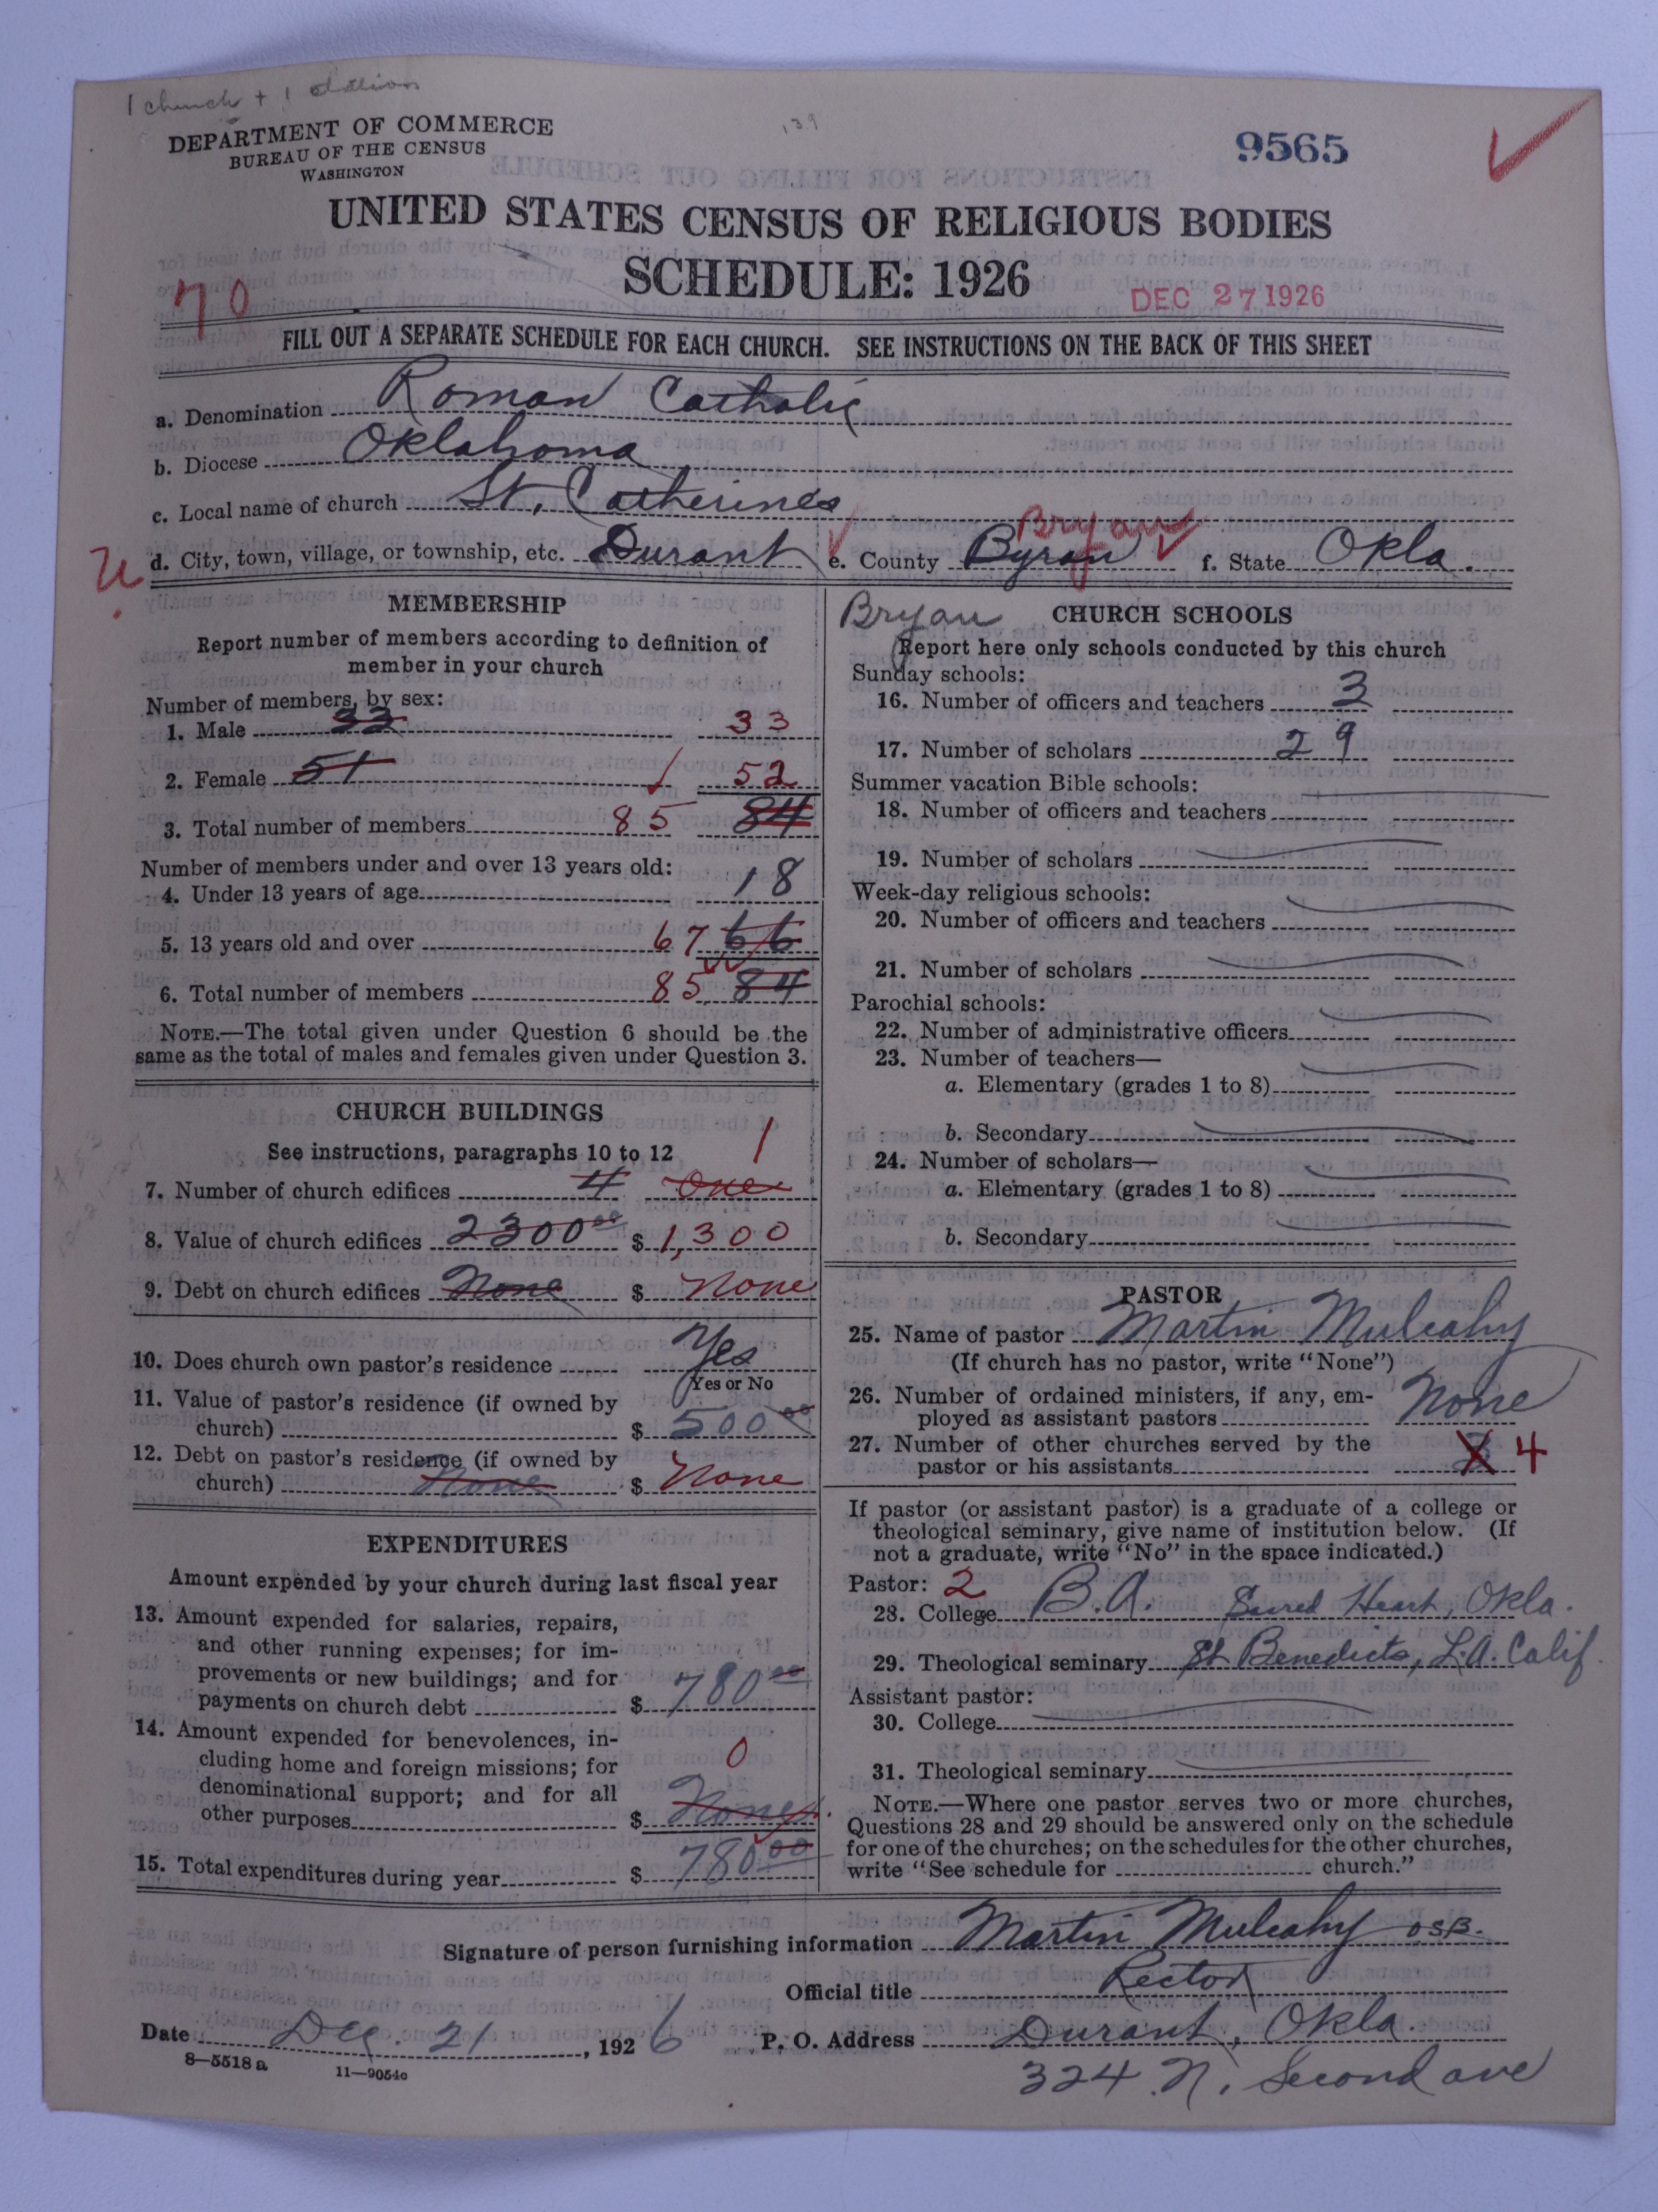 1 church + 1 station
DEPARTMENT OF COMMERCE
BUREAU OF THE CENSUS
WASHINGTON
139
9565
UNITED STATES CENSUS OF RELIGIOUS BODIES
SCHEDULE: 1926
70
DEC 27 1926
FILL OUT A SEPARATE SCHEDULE FOR EACH CHURCH. SEE INSTRUCTIONS ON THE BACK OF THIS SHEET
a. Denomination Roman Catholic
b. Diocese Oklahoma
c. Local name of church St. Catherines
Bryan
d. City, town, village, or township, etc. Durant e. County Byran f. State Okla.
MEMBERSHIP
Report number of members according to definition of
member in your church
Number of members, by sex:
1. Male 33 33
2. Female 51 52
3. Total number of members 85 84
Number of members under and over 13 years old:
4. Under 13 years of age 18
5. 13 years old and over 67 66
6. Total number of members 85 84
NOTE.—The total given under Question 6 should be the
same as the total of males and females given under Question 3.
CHURCH BUILDINGS
See instructions, paragraphs 10 to 12 1
7. Number of church edifices 4 One
8. Value of church edifices 2300 00 $ 1,300
9. Debt on church edifices None $ None
10. Does church own pastor's residence Yes
Yes or No
11. Value of pastor's residence (if owned by
church) $ 500 00
12. Debt on pastor's residence (if owned by
church) None $ None
EXPENDITURES
Amount expended by your church during last fiscal year
13. Amount expended for salaries, repairs,
and other running expenses; for im-
provements or new buildings; and for
payments on church debt $ 780 00
14. Amount expended for benevolences, in-
cluding home and foreign missions; for 0
denominational support; and for all
other purposes $ None
15. Total expenditures during year $ 780 00
Bryan CHURCH SCHOOLS
Report here only schools conducted by this church
Sunday schools:
16. Number of officers and teachers 3
17. Number of scholars 29
Summer vacation Bible schools:
18. Number of officers and teachers
19. Number of scholars
Week-day religious schools:
20. Number of officers and teachers
21. Number of scholars
Parochial schools:
22. Number of administrative officers
23. Number of teachers—
a. Elementary (grades 1 to 8)
b. Secondary
24. Number of scholars—
a. Elementary (grades 1 to 8)
b. Secondary
PASTOR
25. Name of pastor Martin Mulcahy
(If church has no pastor, write "None")
26. Number of ordained ministers, if any, em-
ployed as assistant pastors None
27. Number of other churches served by the
pastor or his assistants 4
If pastor (or assistant pastor) is a graduate of a college or
theological seminary, give name of institution below. (If
not a graduate, write "No" in the space indicated.)
Pastor: 2
28. College B.A. Sacred Heart, Okla.
29. Theological seminary St Benedicts, L.A. Calif.
Assistant pastor:
30. College
31. Theological seminary
NOTE.—Where one pastor serves two or more churches,
Questions 28 and 29 should be answered only on the schedule
for one of the churches; on the schedules for the other churches,
write "See schedule for church."
Signature of person furnishing information Martin Mulcahy OSB.
Official title Rector
Date Dec. 21, 1926 P. O. Address Durant, Okla.
8—5518 a 11—9054c
324 N. Second ave